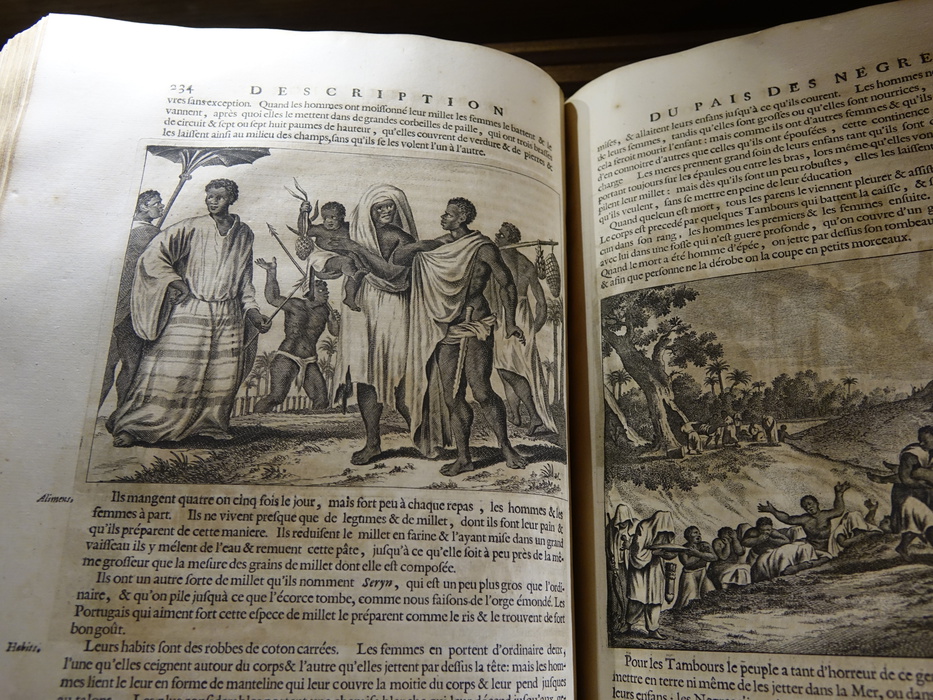 234 DESCRIPTION
vres sans exception. Quand les hommes ont moissonné leur millet les femmes le battent & le
vannent, après quoi elles le mettent dans de grandes corbeilles de paille, qui ont trois brasses
de circuit & sept ou sept huit paumes de hauteur, qu'elles couvrent de verdure & de pierres &
les laissent ainsi au milieu des champs, sans qu'ils se les volent l'un à l'autre.
Aliments.
Ils mangent quatre on cinq fois le jour, mais fort peu à chaque repas, les hommes & les
femmes à part. Ils ne vivent presque que de legumes & de millet, dont ils font leur pain &
qu'ils préparent de cette maniere. Ils reduisent le millet en farine & l'ayant mise dans un grand
vaisseau ils y mêlent de l'eau & remuent cette pâte, jusqu'à ce qu'elle soit à peu près de la mê-
me grosseur que la mesure des grains de millet dont elle est composée.
Ils ont un autre sorte de millet qu'ils nomment Seryn, qui est un peu plus gros que l'ordi-
naire, & qu'on pile jusqu'à ce que l'écorce tombe, comme nous faisons de l'orge émondé. Les
Portugais qui aiment fort cette espece de millet le préparent comme le ris & le trouvent de fort
bon goût.
Habits.
Leurs habits sont des robbes de coton carrées. Les femmes en portent d'ordinaire deux,
l'une qu'elles ceignent autour du corps & l'autre qu'elles jettent par dessus la tête: mais les hom-
mes lient le leur en forme de manteline qui leur couvre la moitie du corps & leur pend jusques
DU PAIS DES NEGRE
mises, & allaitent leurs enfans jusqu'à ce qu'ils courent. Les hommes
de leurs femmes, tandis qu'elles sont grosses ou qu'elles sont nourrices,
cela feroit mourir l'enfant: mais comme ils ont d'autres femmes & qu'ils
d'en connoître d'autres que celles qu'ils ont épousées, cette continence
charge Les meres prennent grand soin de leurs enfans tant qu'ils sont
portant toujours sur les épaules ou entre les bras, lors même qu'elles vont
pilent leur millet: mais dès qu'ils sont un peu robustes, elles les laissent
qu'ils veulent, sans se mettre en peine de leur éducation
Quand quelcun est mort, tous les parens le viennent pleurer & assist
Le corps est precedé par quelques Tambours qui battent la caisse, &
cun dans son rang, les hommes les premiers & les femmes ensuite.
avec lui dans une fosse qui n'est guere profonde, qu'on couvre d'un
Quand le mort a été homme d'épée, on jette par dessus son tombeau
& afin que personne ne la dérobe on la coupe en petits morceaux.
Pour les Tambours le peuple a tant d'horreur de ce ge
mettre en terre ni même de le jetter dans la Mer, ou dans
leurs enfans: les